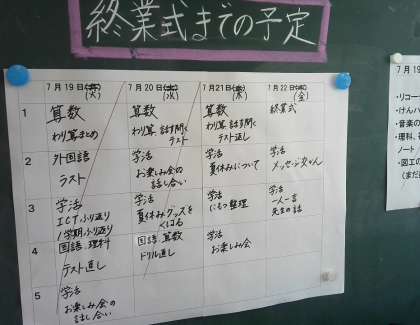 終業式までの予定
7月19日(火)
7月20日(水)
7月21日(木)
7月22日(金)
1
算数
わり算まとめ
算数
わり算 話す聞く
テスト
算数
わり算
テスト直し
終業式
2
外国語
テスト
学活
お楽しみ会の
話し合い
学活
夏休みについて
学活
メッセージ
3
学活
ICTふり返り
1学期ふり返り
学活
夏休みグッズを
くばる
学活
にもつ整理
学活
一人一言
先生の話
4
国語 理科
テスト直し
国語 算数
ドリル直し
学活
お楽しみ会
5
学活
お楽しみ会の
話し合い
7月19
・リコー
・けんハ
・音楽の
・理科、
ノート
・図工の